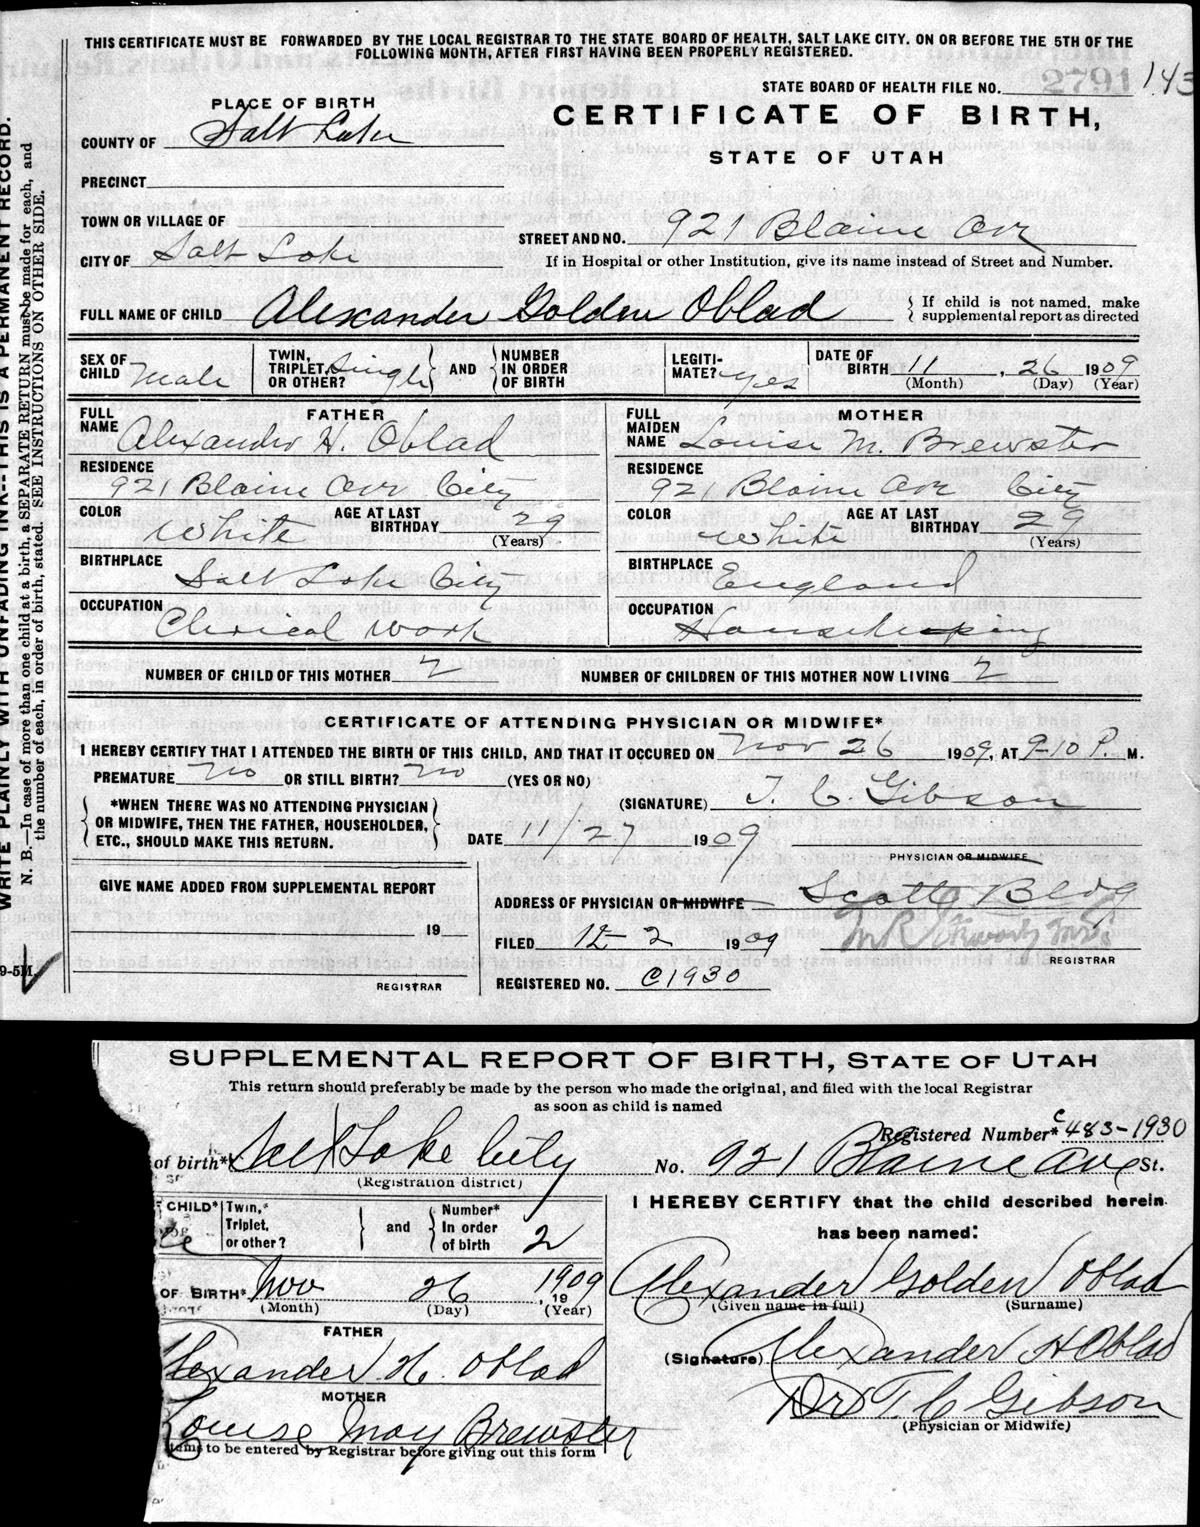 THIS CERTIFICATE MUST BE FORWARDED BY THE LOCAL REGISTRAR TO THE STATE BOARD OF HEALTH, SALT LAKE CITY. ON OR BEFORE THE 5TH OF THE
FOLLOWING MONTH, AFTER FIRST HAVING BEEN PROPERLY REGISTERED.
STATE BOARD OF HEALTH FILE NO. 143
PLACE OF BIRTH
CERTIFICATE OF BIRTH,
COUNTY OF Salt Lake
STATE OF UTAH
PRECINCT
TOWN OR VILLAGE OF
STREET AND NO. 921 Blaine Ave
CITY OF Salt Lake
If in Hospital or other Institution, give its name instead of Street and Number.
FULL NAME OF CHILD Alexander Golden Oblad
If child is not named, make
supplemental report as directed
SEX OF CHILD Male
TWIN, TRIPLET, OR OTHER? Single
AND
NUMBER IN ORDER OF BIRTH
LEGITIMATE? yes
DATE OF BIRTH 11, 26 1909
(Month) (Day) (Year)
FATHER
FULL NAME Alexander H. Oblad
RESIDENCE
921 Blaine Ave City
COLOR White
AGE AT LAST BIRTHDAY 29
(Years)
BIRTHPLACE
Salt Lake City
OCCUPATION
Clerical work
MOTHER
FULL MAIDEN NAME Louise M. Brewster
RESIDENCE
921 Blaine Ave City
COLOR White
AGE AT LAST BIRTHDAY 29
(Years)
BIRTHPLACE England
OCCUPATION
Housekeeping
NUMBER OF CHILD OF THIS MOTHER 2
NUMBER OF CHILDREN OF THIS MOTHER NOW LIVING 2
CERTIFICATE OF ATTENDING PHYSICIAN OR MIDWIFE*
I HEREBY CERTIFY THAT I ATTENDED THE BIRTH OF THIS CHILD, AND THAT IT OCCURED ON Nov 26 1909, AT 9-10 P. M.
PREMATURE No OR STILL BIRTH? No (YES OR NO)
*WHEN THERE WAS NO ATTENDING PHYSICIAN
OR MIDWIFE, THEN THE FATHER, HOUSEHOLDER,
ETC., SHOULD MAKE THIS RETURN.
(SIGNATURE) T. C. Gibson
DATE 11/27 1909
PHYSICIAN OR MIDWIFE
GIVE NAME ADDED FROM SUPPLEMENTAL REPORT
19
REGISTRAR
ADDRESS OF PHYSICIAN OR MIDWIFE Scott Bldg
FILED 12-2 1909
REGISTRAR
REGISTERED NO. C1930
WRITE PLAINLY WITH UNFADING INK--THIS IS A PERMANENT RECORD.
N. B.—In case of more than one child at a birth, a SEPARATE RETURN must be made for each, and
the number of each, in order of birth, stated. SEE INSTRUCTIONS ON OTHER SIDE.
9-5M
SUPPLEMENTAL REPORT OF BIRTH, STATE OF UTAH
This return should preferably be made by the person who made the original, and filed with the local Registrar
as soon as child is named
Registered Number* C483-1930
of birth* Salt Lake City
(Registration district)
No. 921 Blaine Ave St.
CHILD*
Twin,* Triplet, or other?
and
Number* In order of birth 2
OF BIRTH* Nov 26, 1909
19
(Month) (Day) (Year)
FATHER
Alexander H. Oblad
MOTHER
Louise May Brewster
items to be entered by Registrar before giving out this form
I HEREBY CERTIFY that the child described herein
has been named:
Alexander Golden Oblad
(Given name in full) (Surname)
(Signature) Alexander H Oblad
Dr T. C Gibson
(Physician or Midwife)